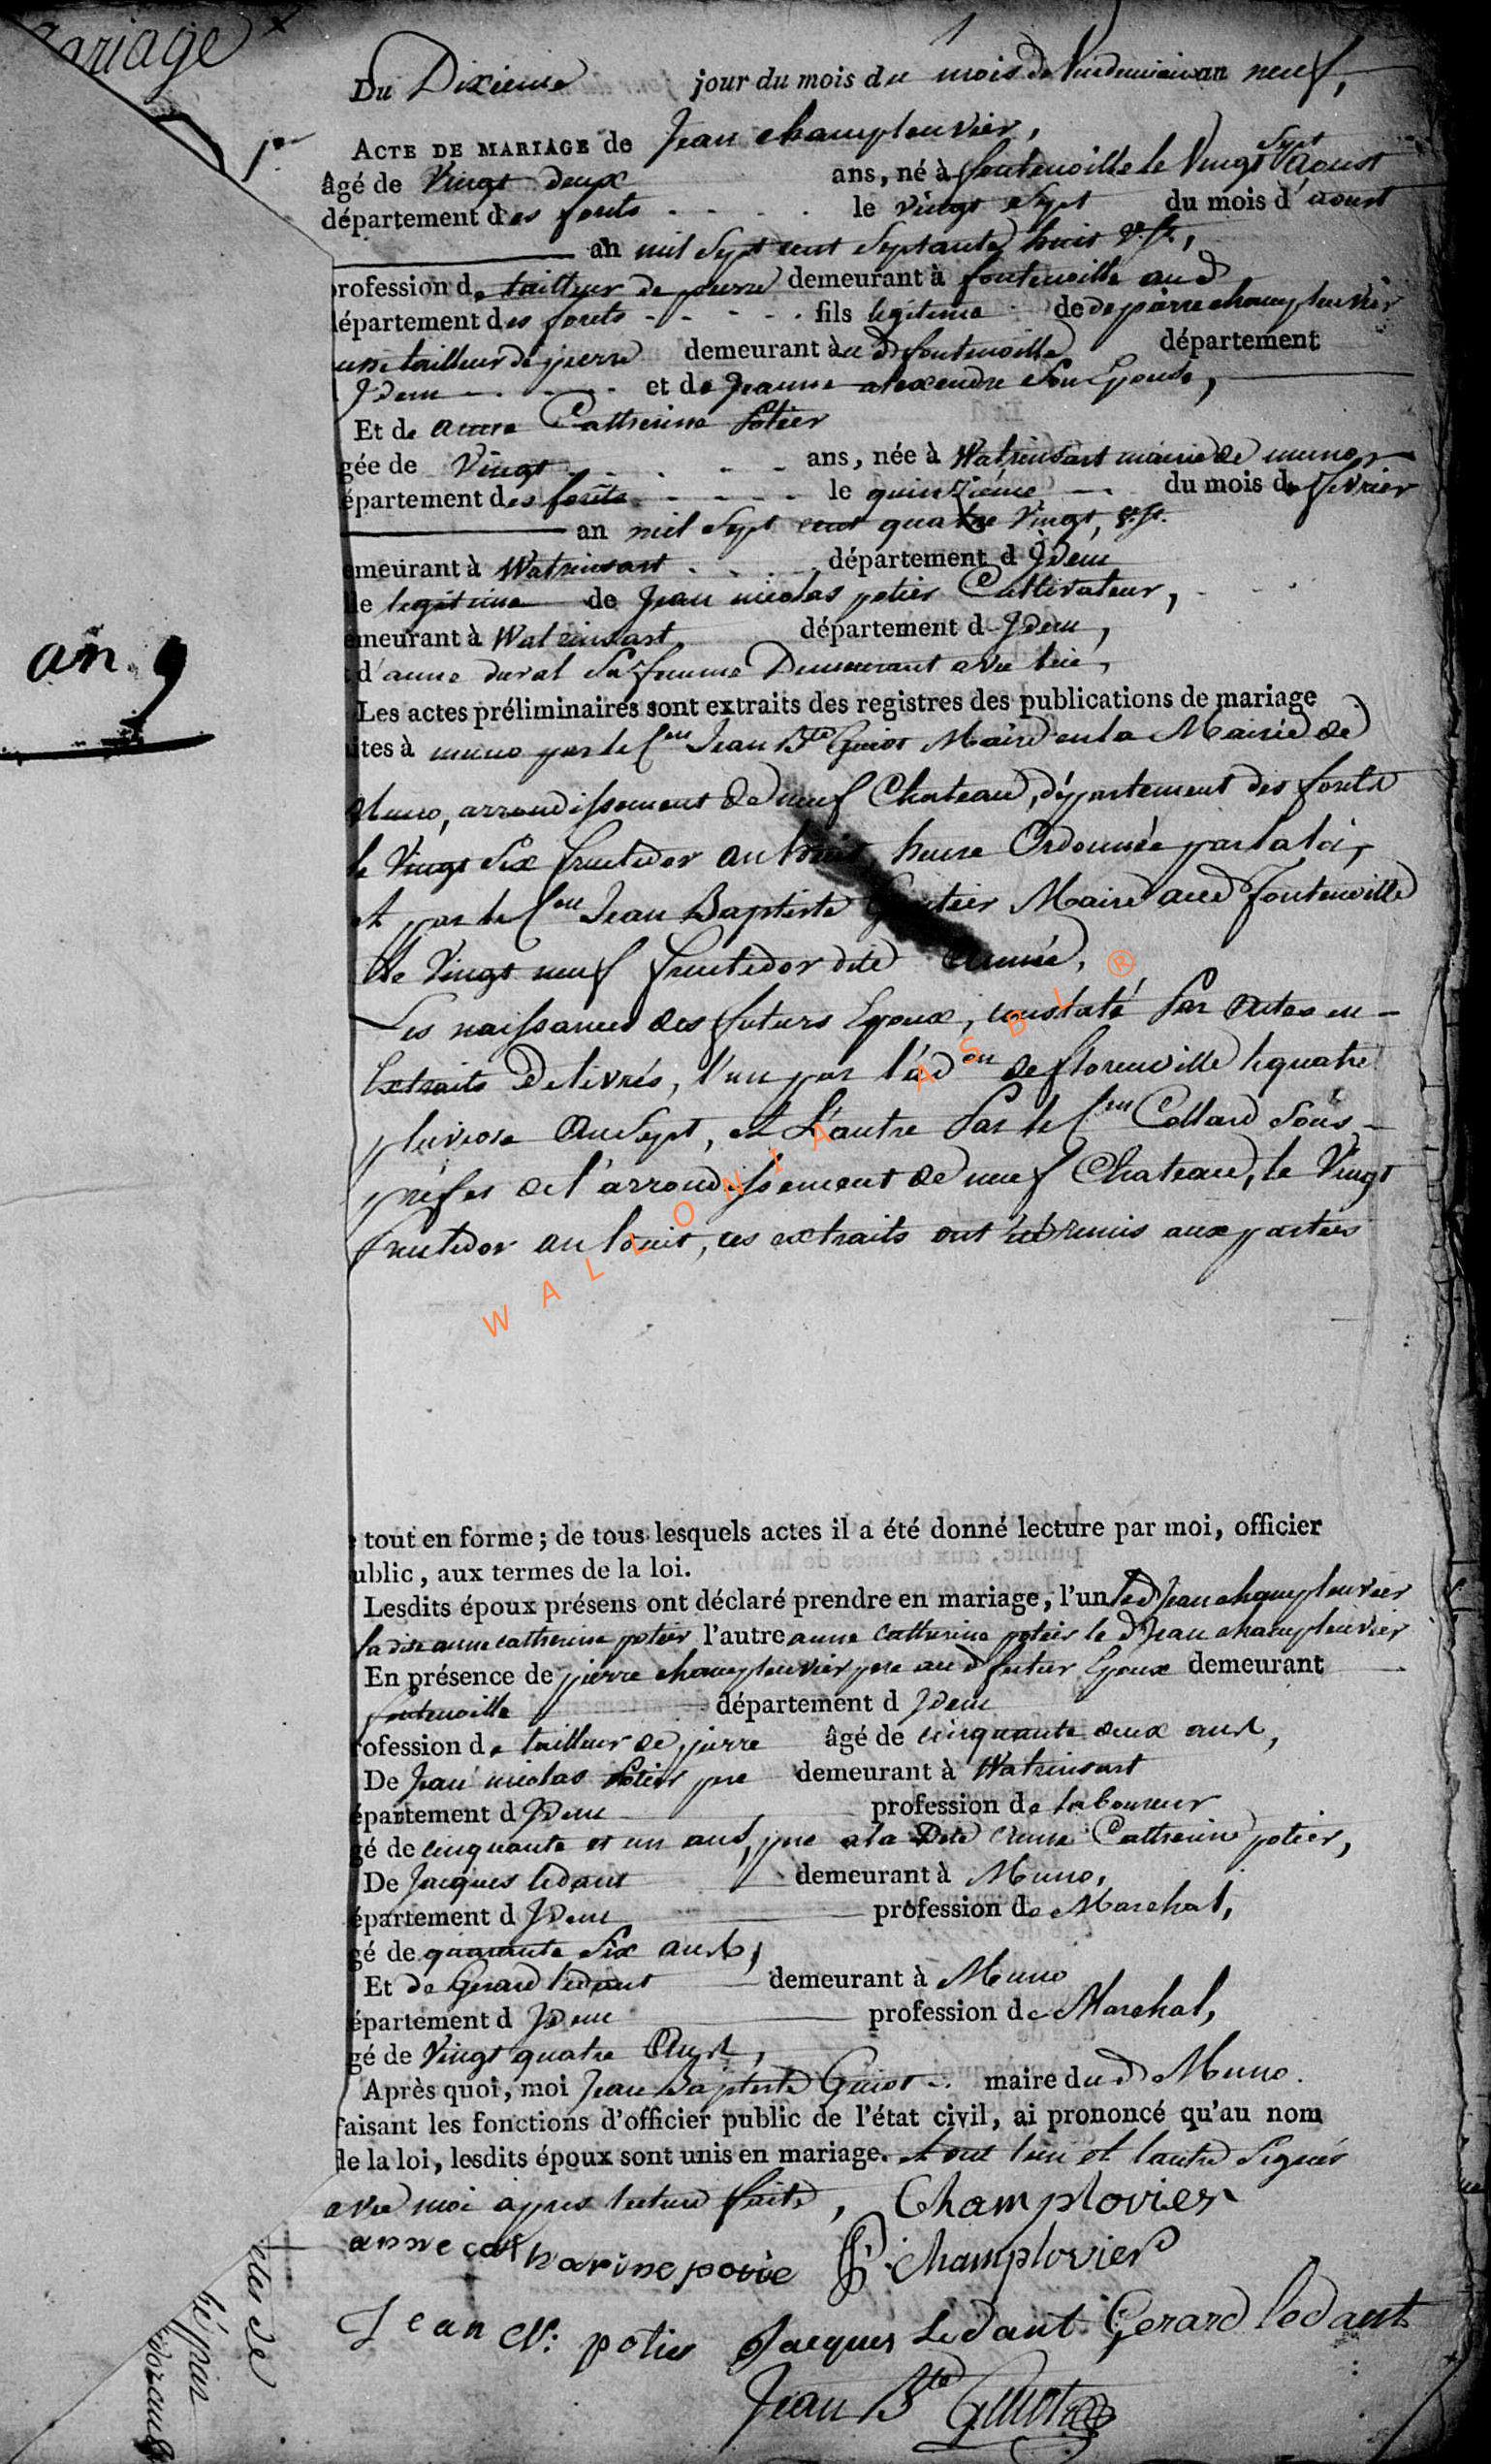 ariage
1
Du Dixieme jour du mois du mois de Vendemiaire an neuf,
1er
ACTE DE MARIAGE de Jean champleuvier,
âgé de Vingt deux ans, né à fontenoille le Vingt Sept aoust
département des forets le vingt Sept du mois d'aoust
an mil Sept cent Septante huit V. St.,
profession de tailleur de pierre demeurant à fontenoille aud
département des forets fils legitime de de pierre champleuvier
tailleur de pierre demeurant au d fontenoille département
Idem et de Jeanne alexendre Son Epouse,
Et de anne Catherine Potier
gée de Vingt ans, née à Watrinsart mairie de muno
épartement des forêts le quinzieme du mois de fevrier
an mil Sept cent quatre Vingt, V. St.
emeurant à Watrinsart département d Idem
le legitime de Jean nicolas potier Cultivateur,
emeurant à Watrinsart département d Idem,
d'anne dural Sa femme Demeurant avec lui,
Les actes préliminaires sont extraits des registres des publications de mariage
ites à muno par le Cen Jean Bte Guiot Maire en la Mairie de
Muno, arrondissement de neuf Chateau, département des forets
le Vingt Six fructidor an huit heure Ordonnée par la loi,
et par le Cen Jean Baptiste Maire aud fontenoille
le Vingt neuf fructidor dite année,
Les naissances des futurs Epoux, constaté par actes en
Extraits Delivrés, l'un par l'adon de florenville le quatre
pluviose an Sept, et L'autre Par le Cen Collard Sous-
prefet de l'arrondissement de neuf Chateau, le Vingt
fructidor an huit, ces extraits ont été remis aux parties
an 9
WALLONIA ASBL ®
e tout en forme ; de tous lesquels actes il a été donné lecture par moi, officier
ublic, aux termes de la loi.
Lesdits époux présens ont déclaré prendre en mariage, l'un led Jean champleuvier
la dite anne catherine potier l'autre anne catherine potier le d Jean champleuvier
En présence de pierre champleuvier pere aud futur Epoux demeurant
fontenoille département d Idem
rofession de tailleur de pierre âgé de cinquante deux ans,
De Jean nicolas Potier pere demeurant à Watrinsart
épartement d Idem profession de laboureur
gé de cinquante et un ans, pere a la Dite anne Catherine potier,
De Jacques ledant demeurant à Muno,
épartement d Idem profession de Marchal,
gé de quarante Six ans,
Et de Gerard ledant demeurant à Muno
épartement d Idem profession de Marchal,
gé de Vingt quatre Ans,
Après quoi, moi Jean Baptiste Guiot maire du d Muno.
faisant les fonctions d'officier public de l'état civil, ai prononcé qu'au nom
de la loi, lesdits époux sont unis en mariage. et ont l'un et l'autre Signés
avec moi apres lecture faite, Champlovier
anne catharine potie P. champlovier
Jean N: potier Jacques Ledant Gerard ledant
Jean Bte Guiot